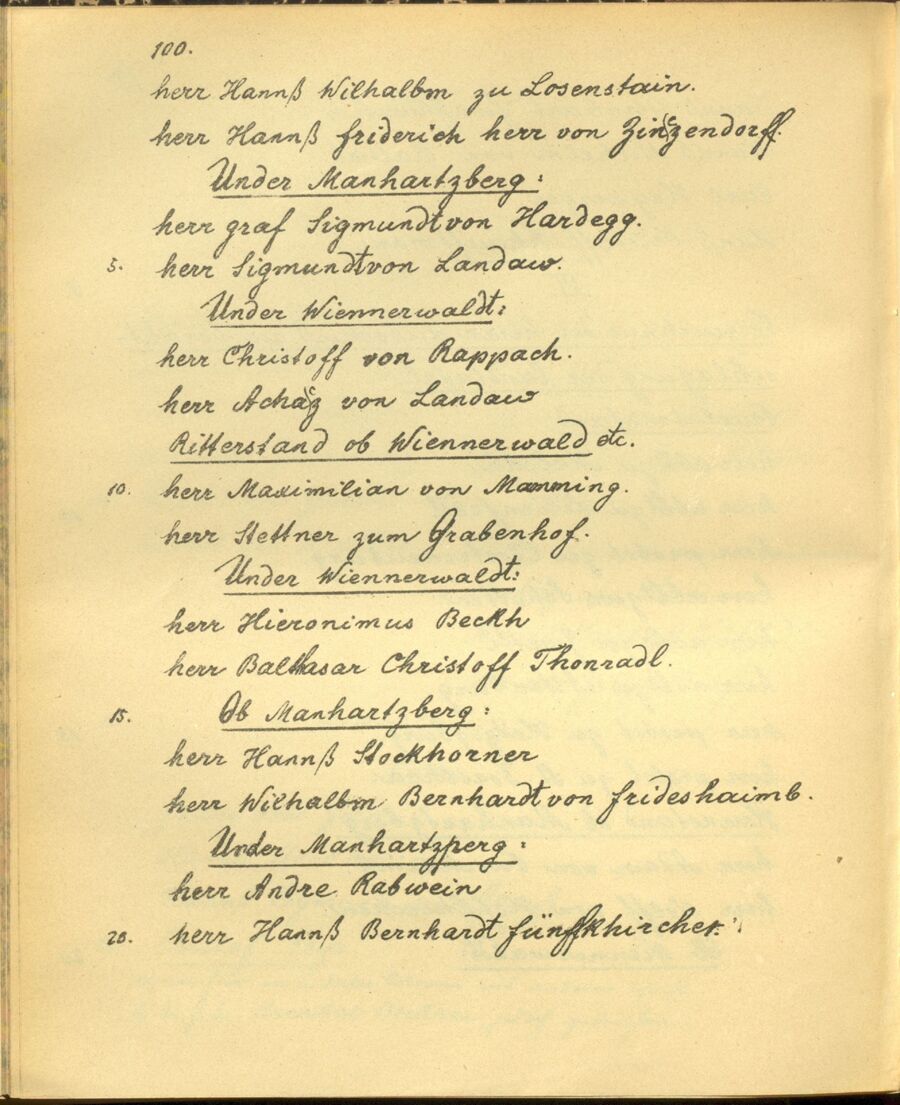 100.
herr Hannß Wilhalbm zu Losenstain.
herr Hannß friderich herr von Zinczendorff.
Under Manhartzberg:
herr graf Sigmundt von Hardegg.
5. herr Sigmundt von Landaw.
Under Wiennerwaldt:
herr Christoff von Rappach.
herr Achacz von Landaw
Ritterstand ob Wiennerwald etc.
10. herr Maximilian von Mamming.
herr Stettner zum Grabenhof.
Under Wiennerwaldt:
herr Hieronimus Beckh
herr Balthasar Christoff Thonradl.
15. Ob Manhartzberg:
herr Hannß Stockhorner
herr Wilhalbm Bernhardt von frideshaimb.
Under Manhartzperg:
herr Andre Rabwein
20. herr Hannß Bernhardt fünffkhircher.